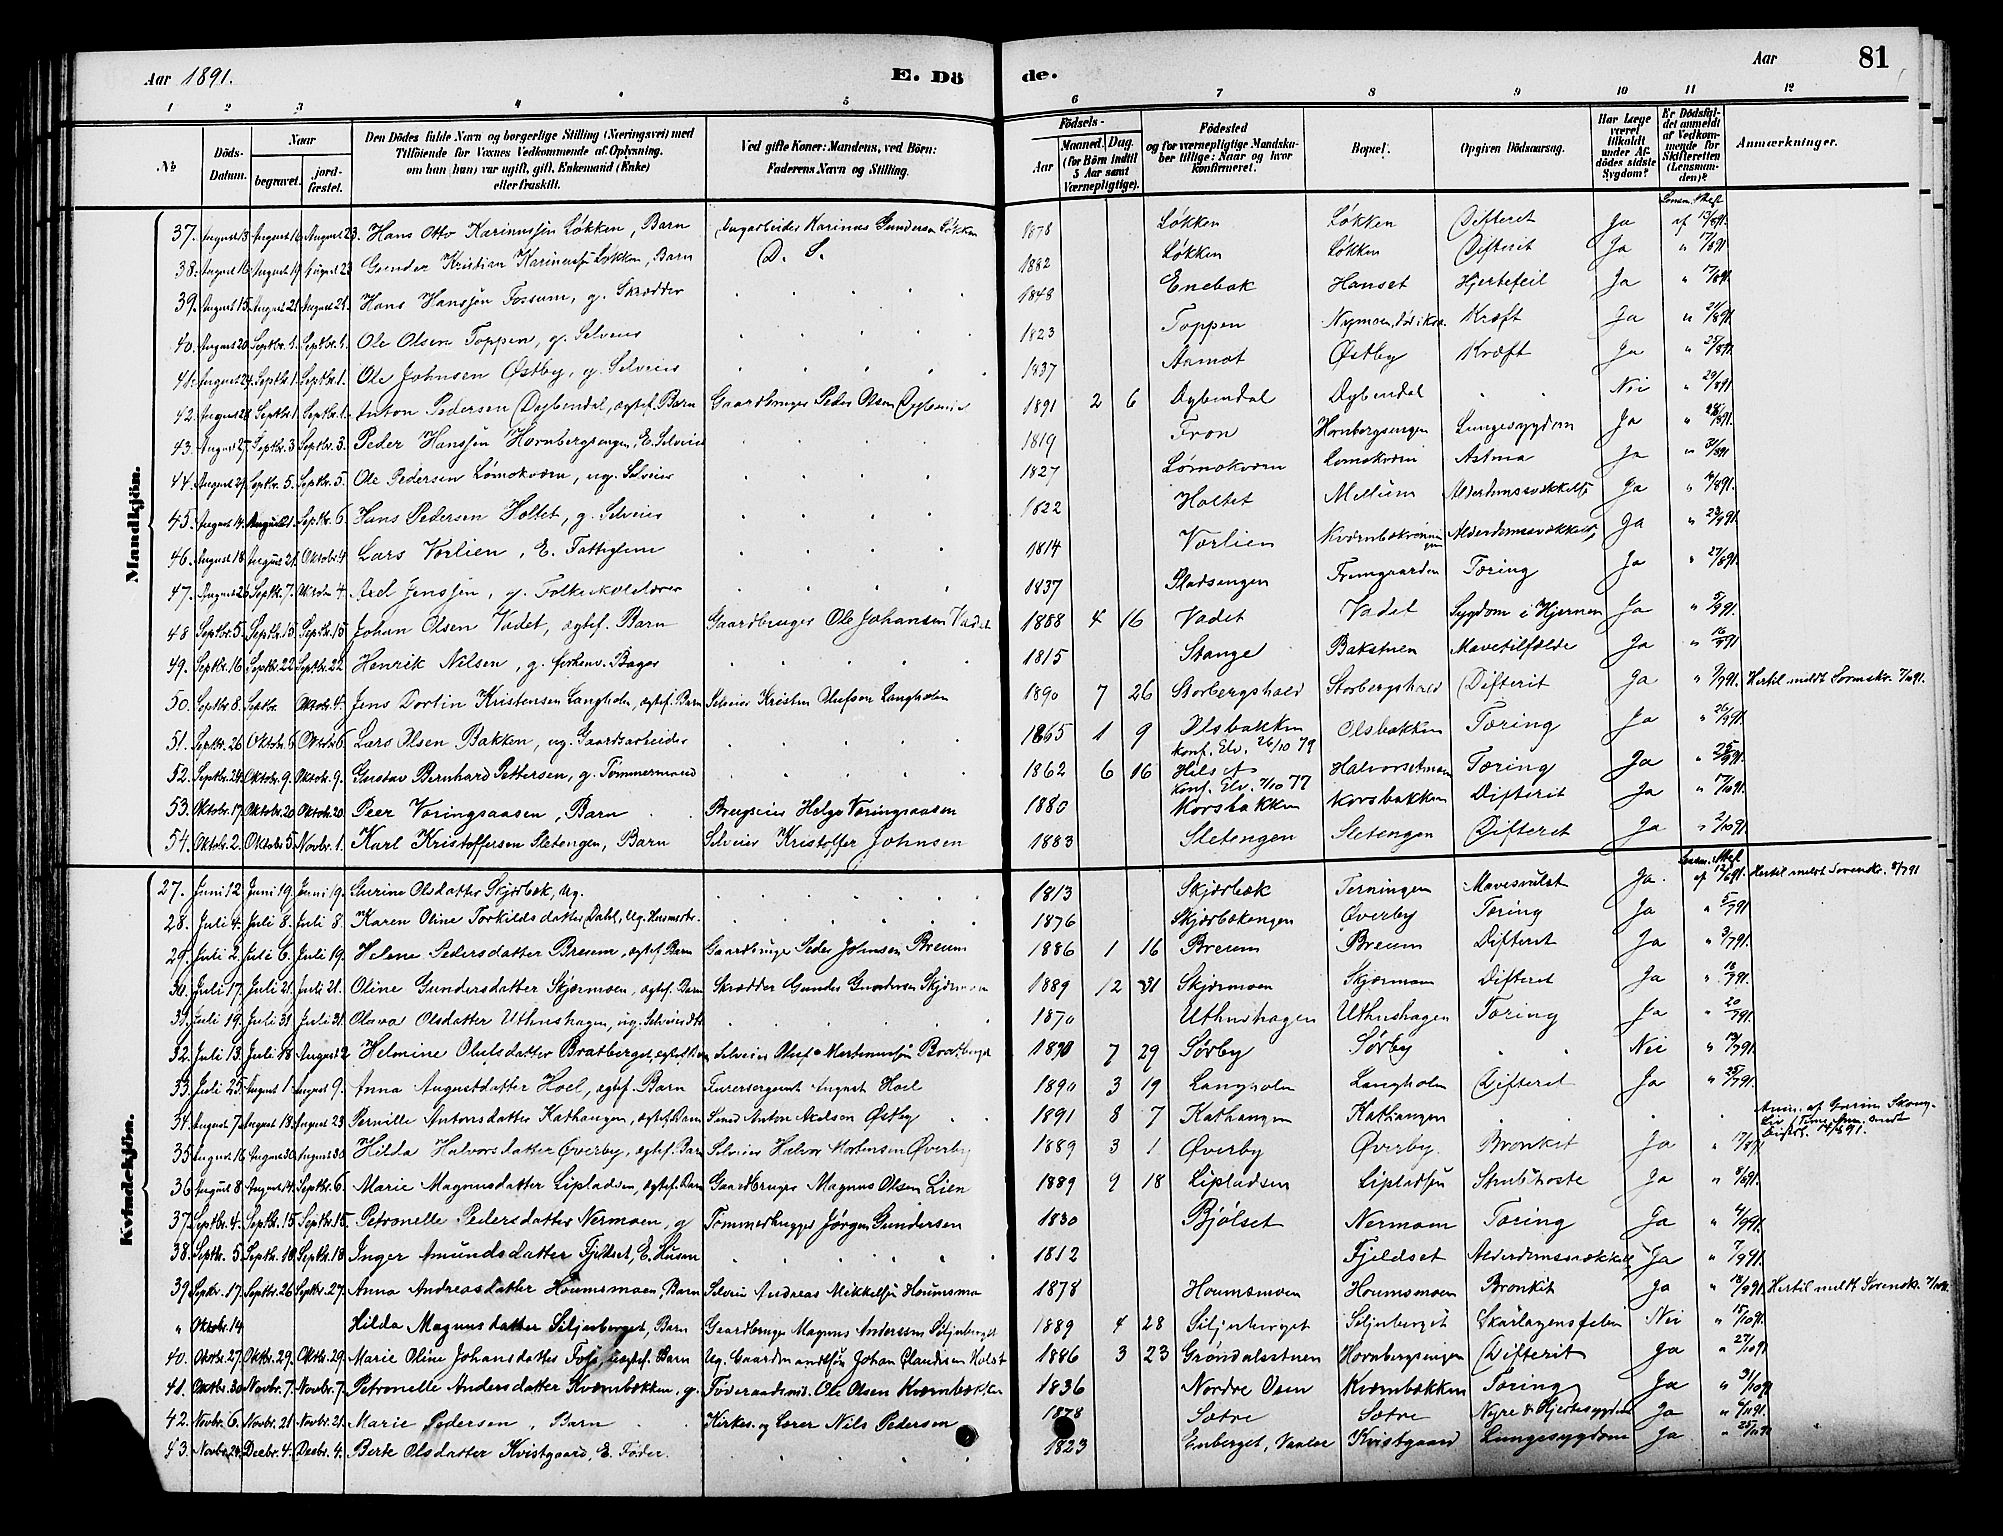 Aar 1891. E. Dö de. Aar 81
1 2 3 4 5 6 7 8 9 10 11 12
№ Döds-Datum. Naar begravet. jordfæstet. Den Dödes fulde Navn og borgerlige Stilling (Næringsvei) med Tilföiende for Voxnes Vedkommende af Oplysning, om han (hun) var ugift, gift, Enkemand (Enke) eller fraskilt. Ved gifte Koner: Mandens, ved Börn: Faderens Navn og Stilling. Födsels- Aar Maaned. Dag. (for Börn indtil 5 Aar samt Værnepligtige). Födested og for værnepligtige Mandskaber tillige: Naar og hvor konfirmeret. Bopæl. Opgiven Dödsaarsag. Har Læge været tilkaldt under Afdödes sidste Sygdom? Er Dödsfaldet anmeldt af Vedkommende for Skifteretten (Lensmanden)? Anmærkninger.
Mandkjön.
37. August 13 August 16 August 23. Hans Otto Karinussøn Løkken, Barn Dagarbeider Karinus Gundersen Løkken 1878 Løkken Løkken Difterit Ja
38. August 16 August 19 August 23 Gunder Kristian Karinussøn Løkken, Barn D. S. 1882 Løkken Løkken Difterit Ja
39. August 15 August 21 August 21. Hans Hanssøn Fossum, g. Skrædder 1848 Enebak Hanset Hjertefeil Ja " 17/8 91.
40. August 20 Septbr. 1. Septbr. 1. Ole Olsen Toppen, g. Selveier 1823 Toppen Kræft Ja " 21/8 91.
41. August 24. Septbr. 1. Septbr. 1. Ole Johnsen Østby, g. Selveier 1837 Aamot Østby Kræft Ja " 25/8 91.
42. Septbr. 1 Septbr. 1. Anton Pedersen Dybendal, ægtef. Barn Gaardbruger Peder Olsen 1891 2 6 Dybendal Dybendal Nei " 29/8 91
43. August 27. Septbr. 3 Septbr. 3. Peder Hanssøn Hornbergsengen, E. Selveier 1819 Fron Hornbergsengen Lungesygdom Ja
44. Septbr. 5. Septbr. 5. Ole Pedersen Lømokværn, ug. Selveier 1827 Lømokværn Lomokværn Astma Ja " 31/8 91
45. August 14. August 21. Septbr. 6. Hans Pedersen Holtet, g. Selveier 1822 Holtet Mellum Ja
46. August 18 August 21. Oktobr. 4. Lars Vorlien, E. Fattiglem 1814 Vorlien Ja
47. Septbr. 7. Oktobr. 4. Axel Jenssøn, g. 1837 Pladsengen Framgaarden Tæring Ja " 27/8 91.
48 Septbr. 5. Septbr. 15 Septbr. 15 Johan Olsen Vadet, ægtef. Barn Gaardbruger Ole Johansen Vadet 1888 4 16 Vadet Vadet Sygdom i Hjernen Ja " 5/9 91.
49. Septbr. 16 Septbr. 22 Septbr. 22 Henrik Nilsen, g. forhenv. Bager 1815 Stange Bakstuen Mavetilfælde Ja " 16/9 91.
50. Septbr. 8. Septbr. Oktobr. 4. Jens Dortin Kristensen Langholen, ægtef. Barn Selveier Kristen Olufsen Langholen 1890 7 26 Storbergshold Storbergshold Difterit Ja " 9/9 91.
51. Septbr. 26 Oktobr. 6 Oktobr. 6. Lars Olsen Bakken, ug. Gaardsarbeider 1865 1 9 Olsbakken konf. Elv. 26/10 79 Olsbakken Tæring Ja " 26/9 91.
52. Septbr. 24. Oktobr. 9. Oktobr. 9. Gustav Bernhard Pettersen, g. Tømmermand 1862 6 16 konf. Elv. 7/10 77 Halvorsetmoen Tæring Ja
53. Oktobr. 17. Oktobr. 20 Oktobr. 20. Peer Voringsaasen, Barn Brugseier Helge Voringsaasen 1880 Korsbakken Korsbakken Difterit Ja " 17/10 91.
54. Oktobr. 2. Oktobr. 5 Novbr. 1. Karl Kristoffersen Sletengen, Barn Selveier Kristoffer Johnsen 1883 Sletengen Sletengen Difterit Ja " 2/10 91.
Kvindekjön.
27. Juni 12 Juni 19 Juni 19. Gurine Olsdatter Skjærbæk, ug. 1813 Skjærbæk Terningen Mavesvulst Ja.
28. Juli 4. Juli 8. Juli 8. Karen Oline Torkildsdatter Dahl, ug. 1876 Skjærbækengen Øverby Tæring Ja
29. Juli 2. Juli 6. Juli 19. Helene Pedersdatter Breum, ægtef. Barn Gaardbruger Peder Johnsen Breum 1886 1 16 Breum Breum Difterit Ja " 3/7 91.
30. Juli 17. Juli 21. Juli 21. Oline Gundersdatter Skjærmoen, ægtef. Barn Skrædder Gunder Gundersen Skjærmoen 1889 12 31 Skjærmoen Skjærmoen Difterit Ja
31. Juli 19. Juli 31 Juli 31. Olava Olsdatter Uthushagen, ug. 1870 Uthushagen Uthushagen Tæring Ja " 20/7 91.
32. Juli 13. Juli 18 August 2 Helmine Olufsdatter Bratberget, Selveier Oluf Mortenssøn Bratberget 1890 7 29 Sørby Sørby Nei
33. Juli 25. August 1 August 9. Anna Augustdatter Hoel, ægtef. Barn Furersergeant August Hoel 1890 3 19 Langholen Langholen Difterit Ja
34. August 7. August 18. August 23 Pernille Antonsdatter Kathaugen, ægtef. Barn Smed Anton Axelsen Østby 1891 8 7 Kathaugen Kathaugen
35 August 16 August 30 August 30 Hilda Halvorsdatter Øverby, ægtef. Barn Selveier Halvor Mortensen Øverby 1889 3 1 Øverby Øverby. Bronkit Ja " 17/8 91
36 August 8. August 14. Septbr. 6. Marie Magnusdatter Lipladsen, ægtef. Barn Gaardbruger Magnus Olsen Lien 1889 9 18 Lipladsen Lipladsen Strubehoste Ja " 8/8 91.
37. Septbr. 4. Septbr. 15 Septbr. 15. Petronelle Pedersdatter Nermoen, g Tømmerhugger Jørgen Gundersen 1830 Bjølset Nermoen Tæring Ja " 4/9 91.
38. Septbr. 5 Septbr. 18 Septbr. 18. Inger Amundsdatter Fjeldset, E. 1812 Fjeldset Ja " 7/9 91.
39 Septbr. 17. Septbr. 26 Septbr. 27. Anna Andreasdatter Houmsmoen, Barn Selveier Andreas Mikkelsøn 1878 Houmsmoen Houmsmoen Bronkit Ja " 18/9 91.
" Oktobr. 14 Hilda Magnusdatter Siljuberget, Barn Gaardbruger Magnus Anderssen Siljuberget 1889 4 28 Siljuberget Siljuberget Skarlagensfeber Nei " 15/10 91.
40. Oktbr. 27. Oktbr. 29. Oktbr. 29. Marie Oline Johansdatter Foss, uægtef. Barn Ug. Gaardmandssøn Johan Claudesen Holst 1886 3 23 Grøndalsstuen Hornbergsengen Difterit Ja " 27/10 91
41. Oktbr. 30 Novbr. 7. Novbr. 7. Petronelle Andersdatter Kværnbækken, g. Føderaadsmd. Ole Olsen Kværnbækken 1836 Nordre Osen Kværnbækken Tæring Ja " 31/10 91
42. Novbr. 6. Novbr. 21 Novbr. 21. Marie Pedersen, Barn Kirkes. og Lærer Nils Pedersen 1878 Sætre Sætre Nyre & Hjertesygdom Ja
43. Novbr. 24. Decbr. 4. Decbr. 4. Berte Olsdatter Kvistgaard, E. Føder. 1823 Enberget, Vaaler Kvistgaard Lungesygdom Ja " 25/11 91